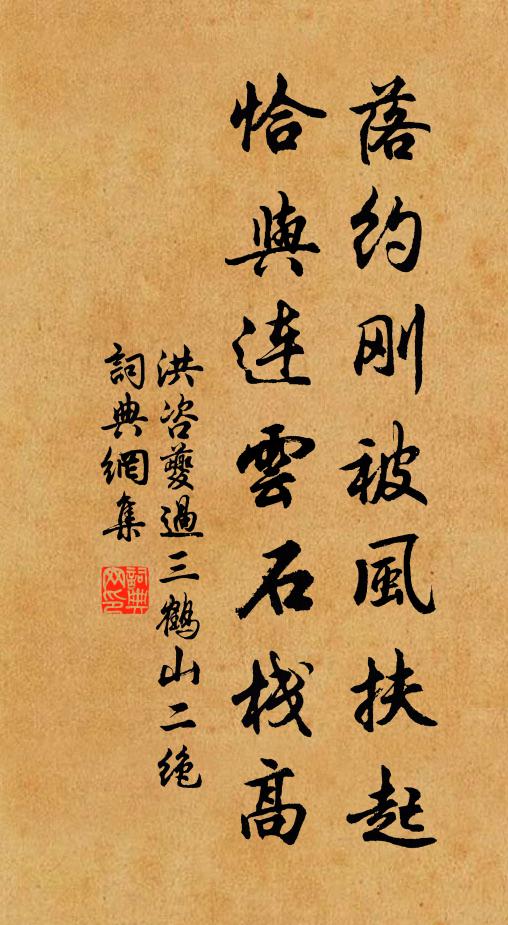 落约刚被風扶起
恰與連雲石栈高
洪咨夔過三鶴山二絶
詞典網集
詞典网印